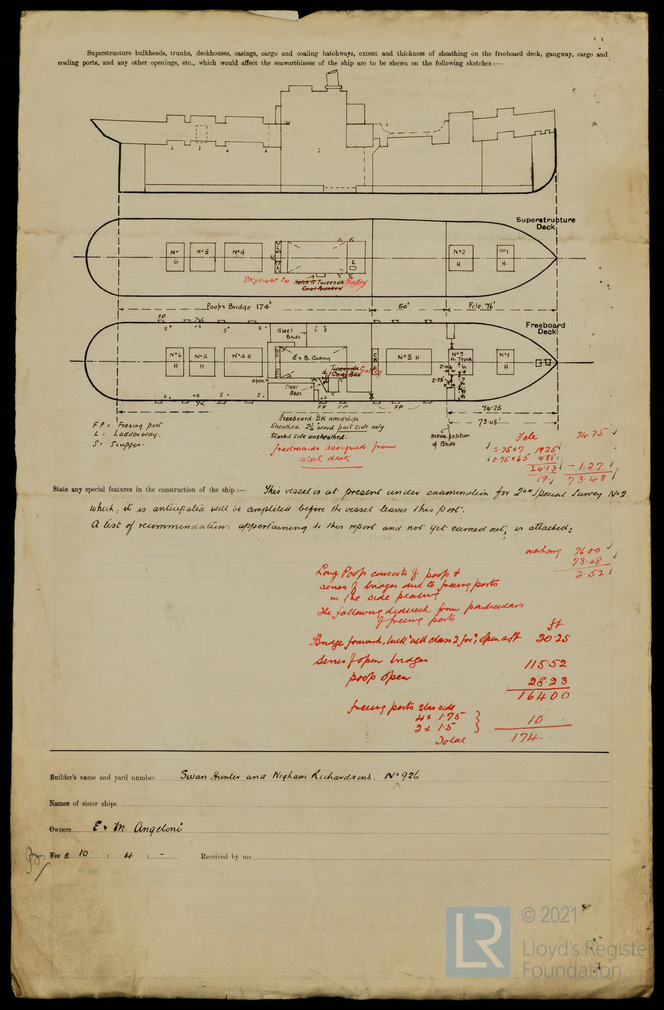 Superstructure bulkheads, trunks, deckhouses, casings, cargo and coaling hatchways, extent and thickness of sheathing on the freeboard deck, gangway, cargo and
coaling ports, and any other openings, etc., which would affect the seaworthiness of the ship are to be shewn on the following sketches :—
Superstructure
Deck
No 6 H
No 5
No 4
No 2 H
No 1 H
L
Skylight to Galley
Coal Bunker
Poop & Bridge 174'
60'
Fcle. 76'
FP
Freeboard
Deck
Steel
Bhds
No 6 H
No 5 H
No 4 H
E & B. Casing
No 3 H
No 2
H. Trunk
No 1 H
Galley
open
Steel
Bhds
2.75
FP FP
FP
74.75
73.48'
FP = Freeing port
L = Ladderway.
S = Scupper.
Freeboard DK amidship
Sheathed 2½ wood port side only
Starbd side unsheathed.
freeboards assigned from
steel deck
mean position
of Bhds
Fcle 74.75
2.75 x 7 19.25
0.75 x 6.5 4.88
24.13 - 1.27
19 73.48
State any special features in the construction of the ship :— This vessel is at present under examination for 2nd Special Survey No 2.
which, it is anticipated will be completed before the vessel leaves this port.
A list of recommendations appertaining to this report and not yet carried out, is attached:
overhang 76.00
73.48
2.52
Long Poop consists of poop +
series of bridges due to freeing ports
in the side plating
The following deduced from particulars
of freeing ports
ft
Bridge forward, class 2 for'd, open aft 20.25
series of open bridges 115.52
poop open 28.23
164.00
freeing ports side
4 x 1.75 } 10
2 x 1.5
Total 174.
Builder's name and yard number Swan Hunter and Wigham Richardsons. No 926
Names of sister ships
Owners E & M. Angeloni
Fee £ 10 : 4 : -
Received by me
LR
© 2021
Lloyd's Register
Foundation